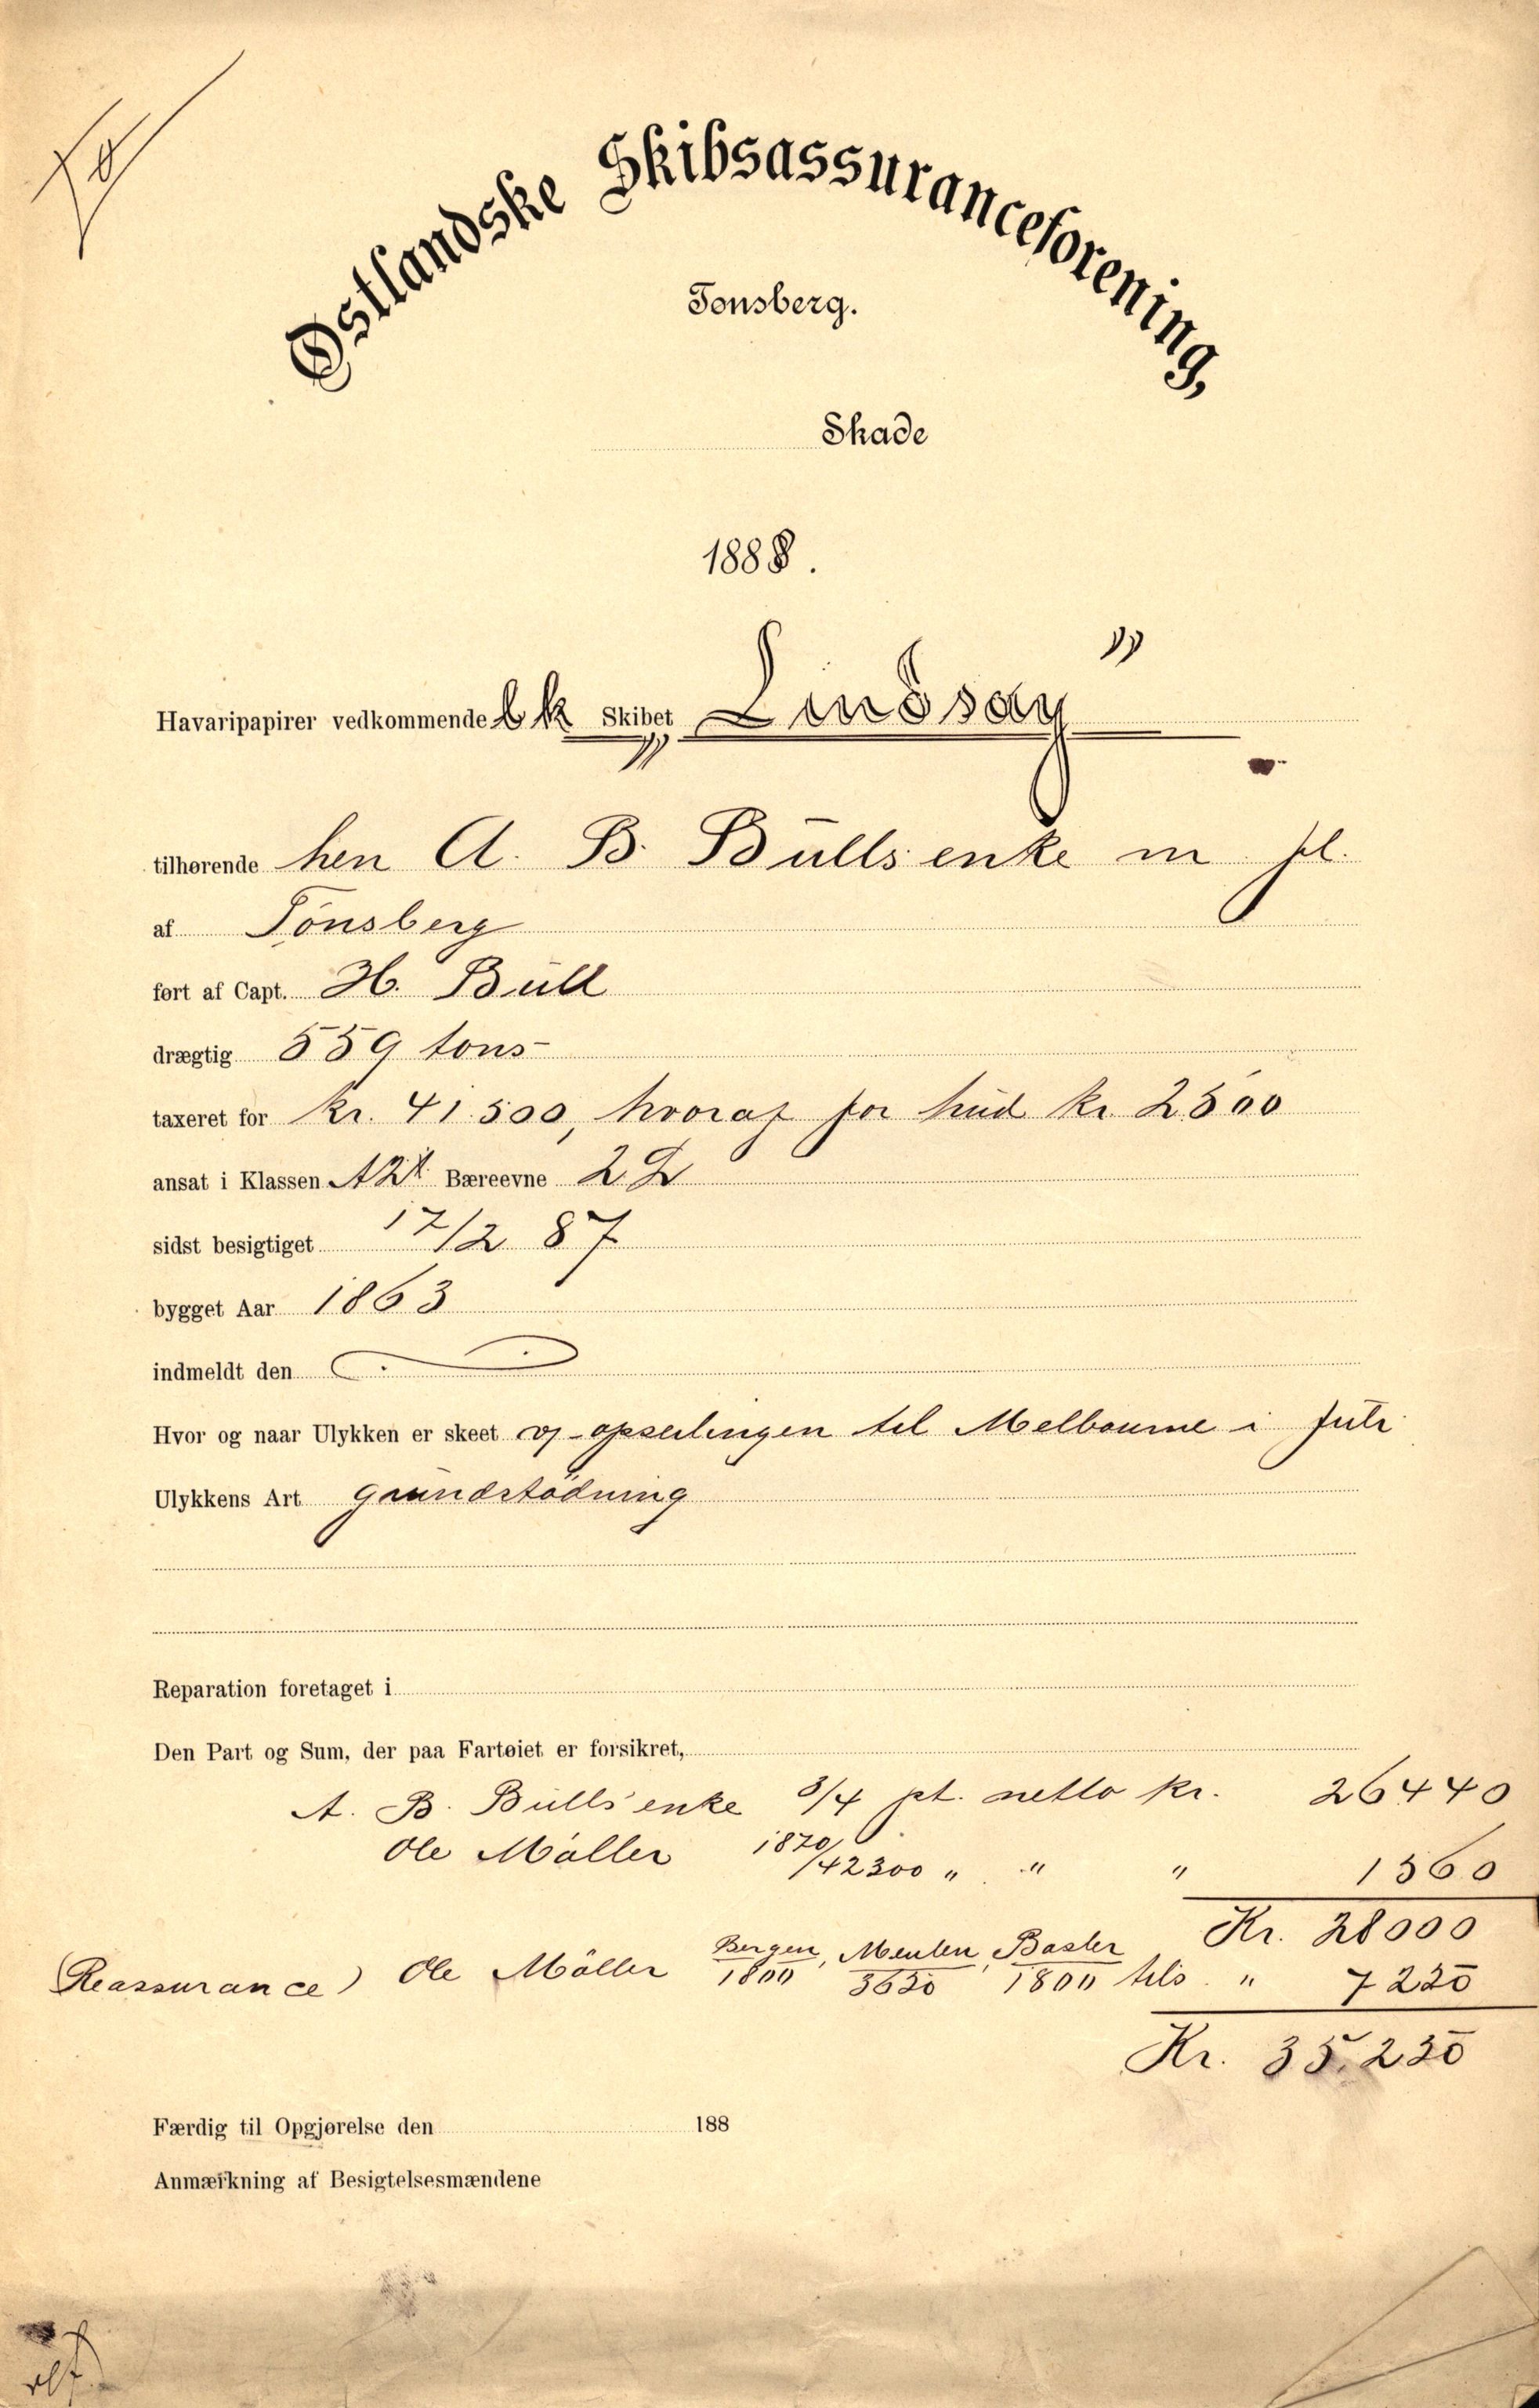 Østlandske Skibsassuranceforening,
Tønsberg.
Skade
1888.
Havaripapirer vedkommende bk Skibet "Lindsay"
tilhørende hen A. B. Bulls enke m fl.
af Tönsberg
ført af Capt. H. Bull
drægtig 559 tons
taxeret for kr. 41.500, hvoraf for hud kr 2500
ansat i Klassen A2 Bæreevne 2
sidst besigtiget 17/2 87
bygget Aar 1863
indmeldt den
Hvor og naar Ulykken er skeet opseilingen til Melbourne i Juli
Ulykkens Art grundstödning
Reparation foretaget i
Den Part og Sum, der paa Fartøiet er forsikret,
A. B. Bulls enke 3/4 pt. netto kr. 26440
Ole Möller 1820/42300 " " " 1560
Kr. 28000
(Reassurance) Ole Möller Bergen 1800, 3630, 1800 tils. " 7230
Kr. 35.230
Færdig til Opgjørelse den 188
Anmærkning af Besigtelsesmændene